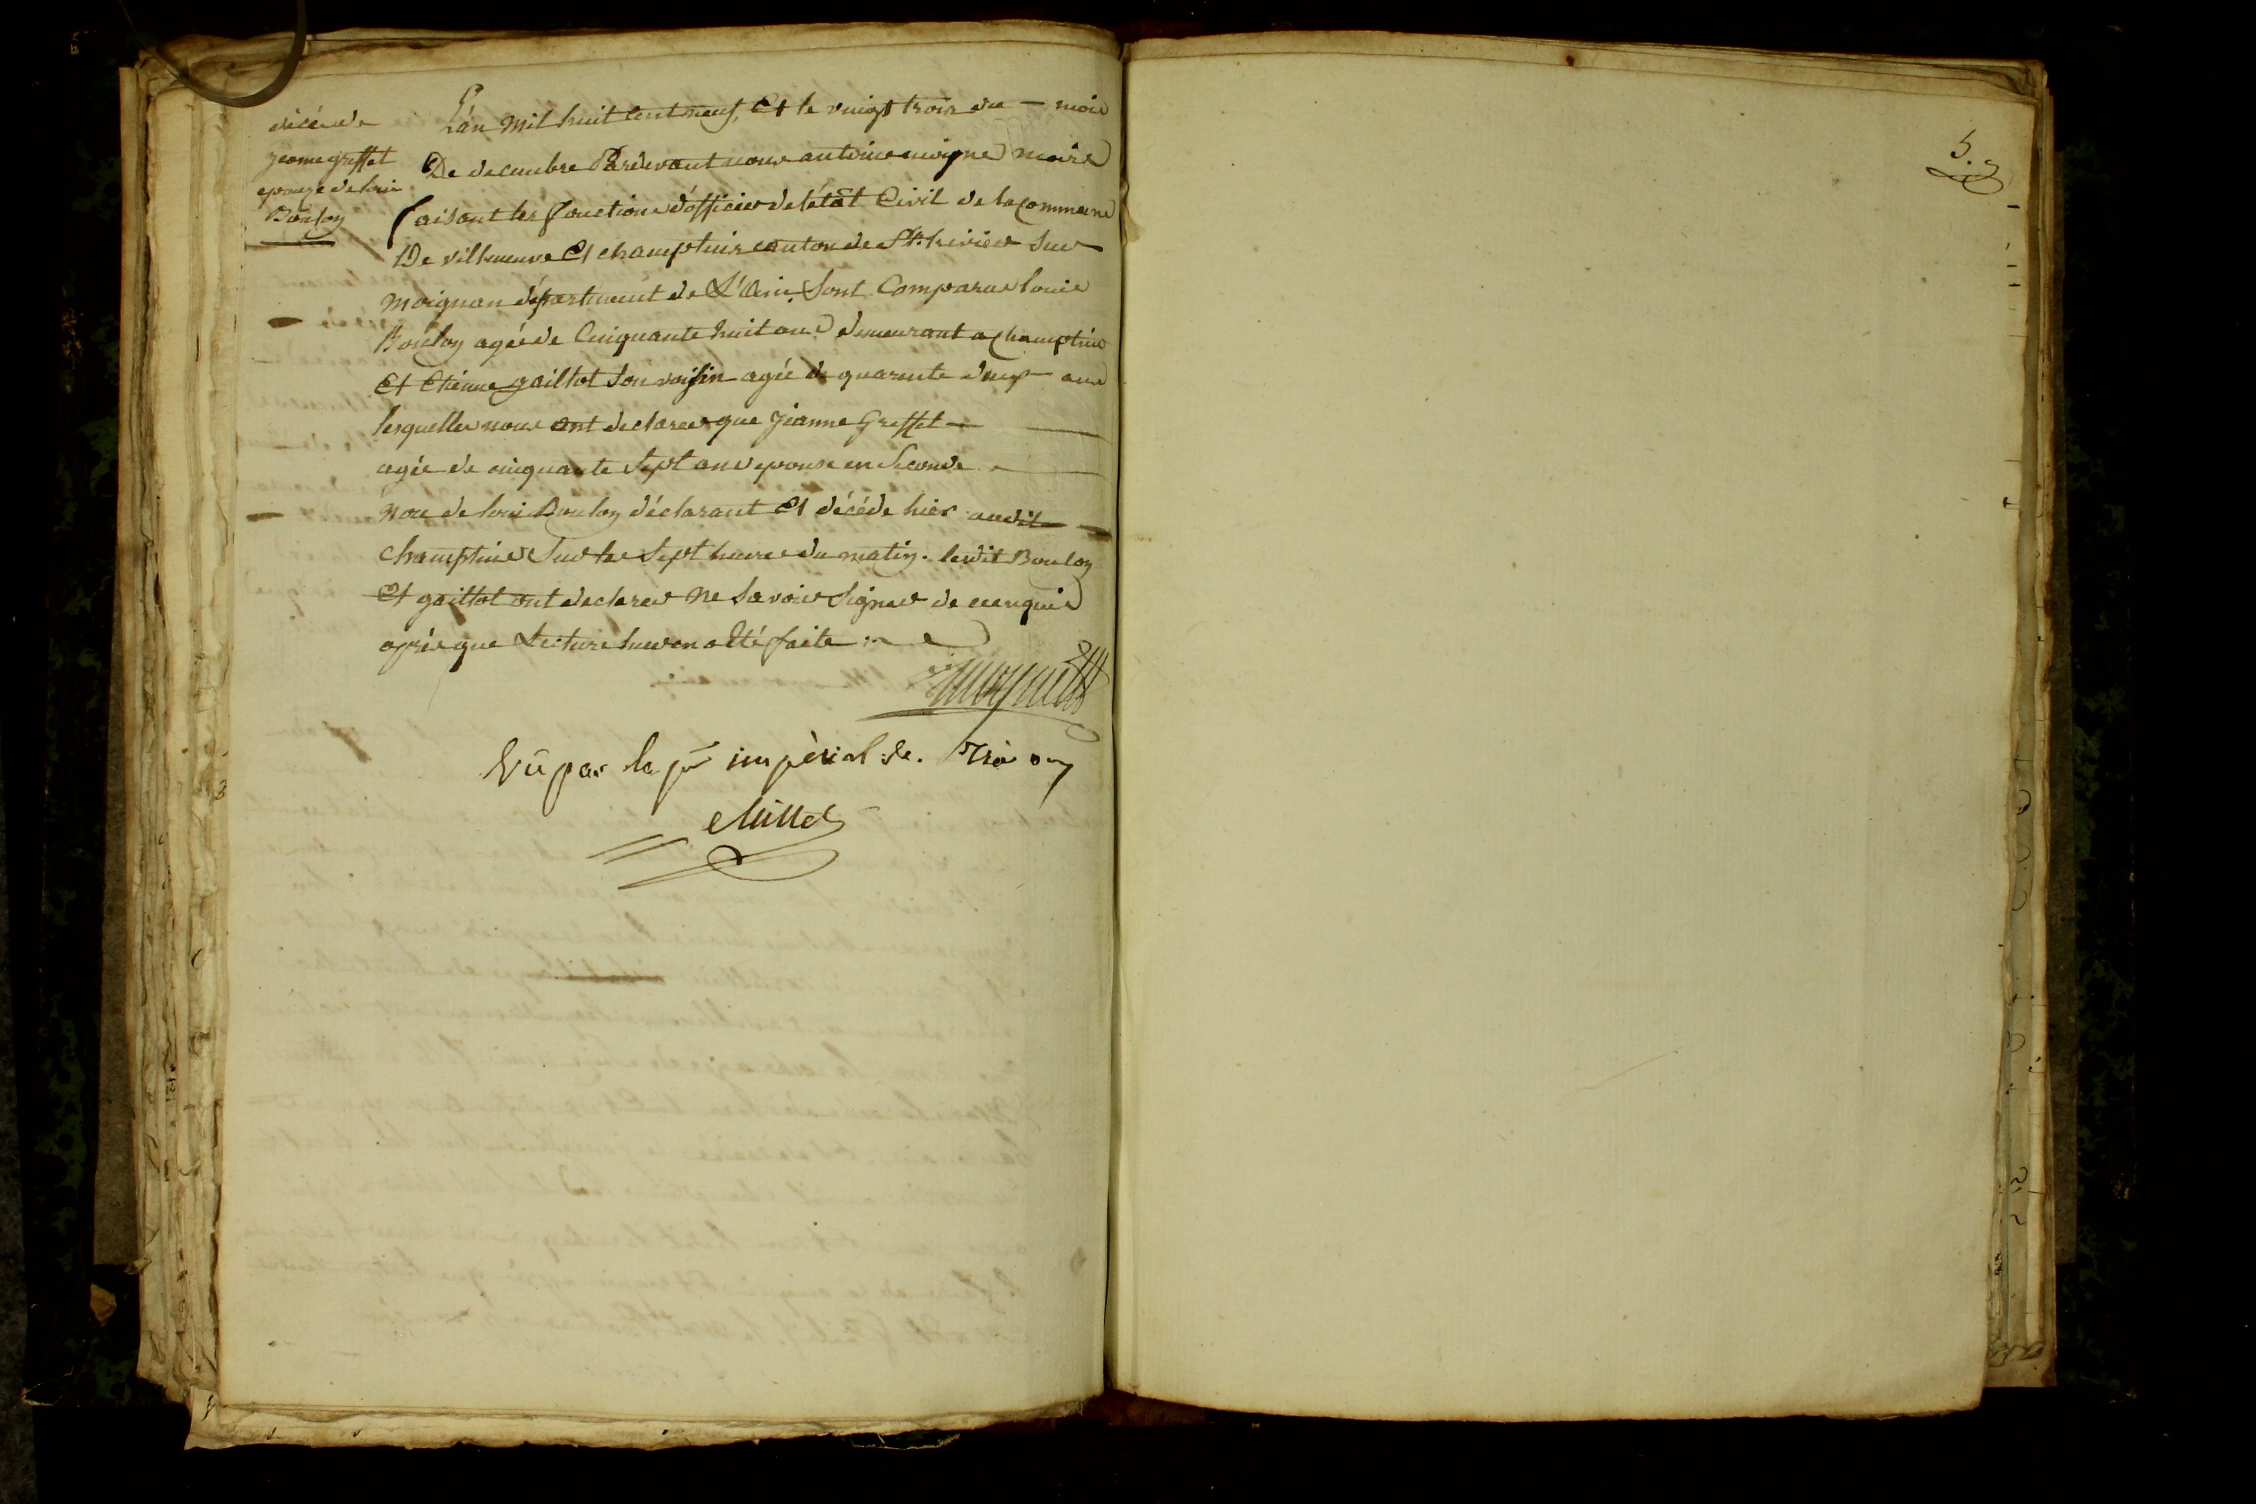 décéde
jeanne greffet
epouze de loui
Bouloy
L'an mil huit cent neuf, Et le vingt trois du — mois
De decembre Pardevant nous antoine moigne maire
faisant les fonctions d'officier de létat Civil de la Commune
De villeneuve Et champtein canton de St. trivier Sur
moignan département de L'Ain, Sont Comparue louis
Bouloy agée de Cinquante huit ans demeurant a champtein
Et Etienne gaillot Son voisin agée de quarente deux ans
lesquelles nous ont declarer que jeanne Greffet —
agée de cinquante Sept ans epouse en Seconde
Noce de loui Bouloy déclarant Et décéde hier audit
champtein Sur les Sept heures du matin. lesdit Bouloy
Et gaillot ont declarer Ne Savoir Signer de ce enquis
après que Lecture leur en a Eté faite
Vû par le pr impérial de
Millet
5.